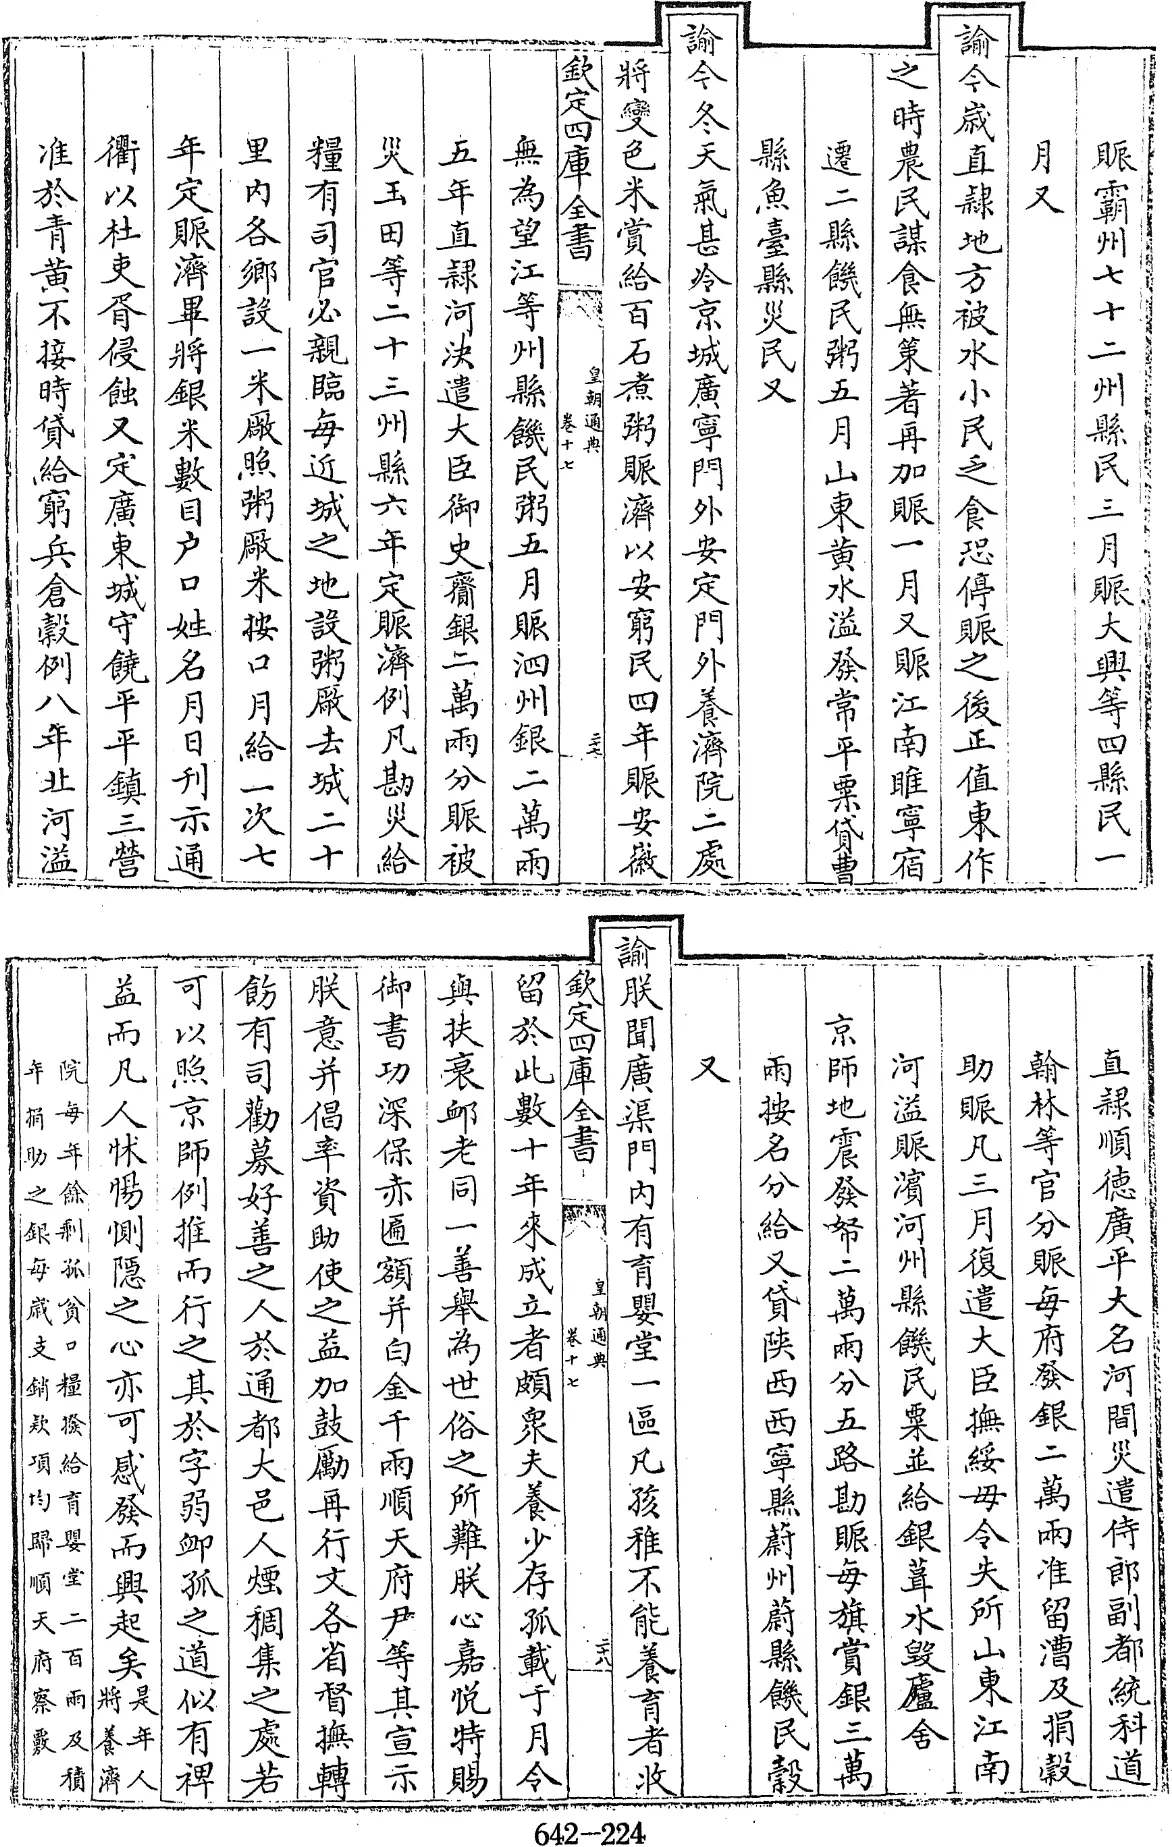 賑霸州七十二州縣民三月賑大興等四縣民一
月又
諭今歲直隸地方被水小民乏食恐停賑之後正值東作
之時農民謀食無策著再加賑一月又賑江南睢寧宿
遷二縣饑民粥五月山東黃水溢發常平粟貸曹
縣魚臺縣災民又
諭今冬天氣甚冷京城廣寧門外安定門外養濟院二處
將變色米賞給百石煮粥賑濟以安窮民四年賑安徽
欽定四庫全書
皇朝通典
卷十七
二七
無為望江等州縣饑民粥五月賑泗州銀二萬兩
五年直隸河決遣大臣御史齎銀二萬兩分賑被
災玉田等二十三州縣六年定賑濟例凡勘災給
糧有司官必親臨每近城之地設粥廠去城二十
里內各鄉設一米廠照粥廠米按口月給一次七
年定賑濟畢將銀米數目户口姓名月日刊示通
衢以杜吏胥侵蝕又定廣東城守饒平平鎮三營
准於青黃不接時貸給窮兵倉穀例八年北河溢
直隸順德廣平大名河間災遣侍郎副都統科道
翰林等官分賑每府發銀二萬兩准留漕及捐穀
助賑凡三月復遣大臣撫綏毋令失所山東江南
河溢賑濱河州縣饑民粟並給銀葺水毀廬舍
京師地震發帑二萬兩分五路勘賑每旗賞銀三萬
兩按名分給又貸陝西西寧縣蔚州蔚縣饑民穀
又
諭朕聞廣渠門內有育嬰堂一區凡孩稚不能養育者收
欽定四庫全書
皇朝通典
卷十七
二八
留於此數十年來成立者頗衆夫養少存孤載于月令
與扶衰䘏老同一善舉為世俗之所難朕心嘉悅特賜
御書功深保赤匾額并白金千兩順天府尹等其宣示
朕意并倡率資助使之益加鼓勵再行文各省督撫轉
飭有司勸募好善之人於通都大邑人煙稠集之處若
可以照京師例推而行之其於字弱䘏孤之道似有裨
益而凡人怵惕惻隱之心亦可感發而興起矣是年人
將養濟
院每年餘剩孤貧口糧撥給育嬰堂二百兩及積
年捐助之銀每歲支銷款項均歸順天府察覈
642-224